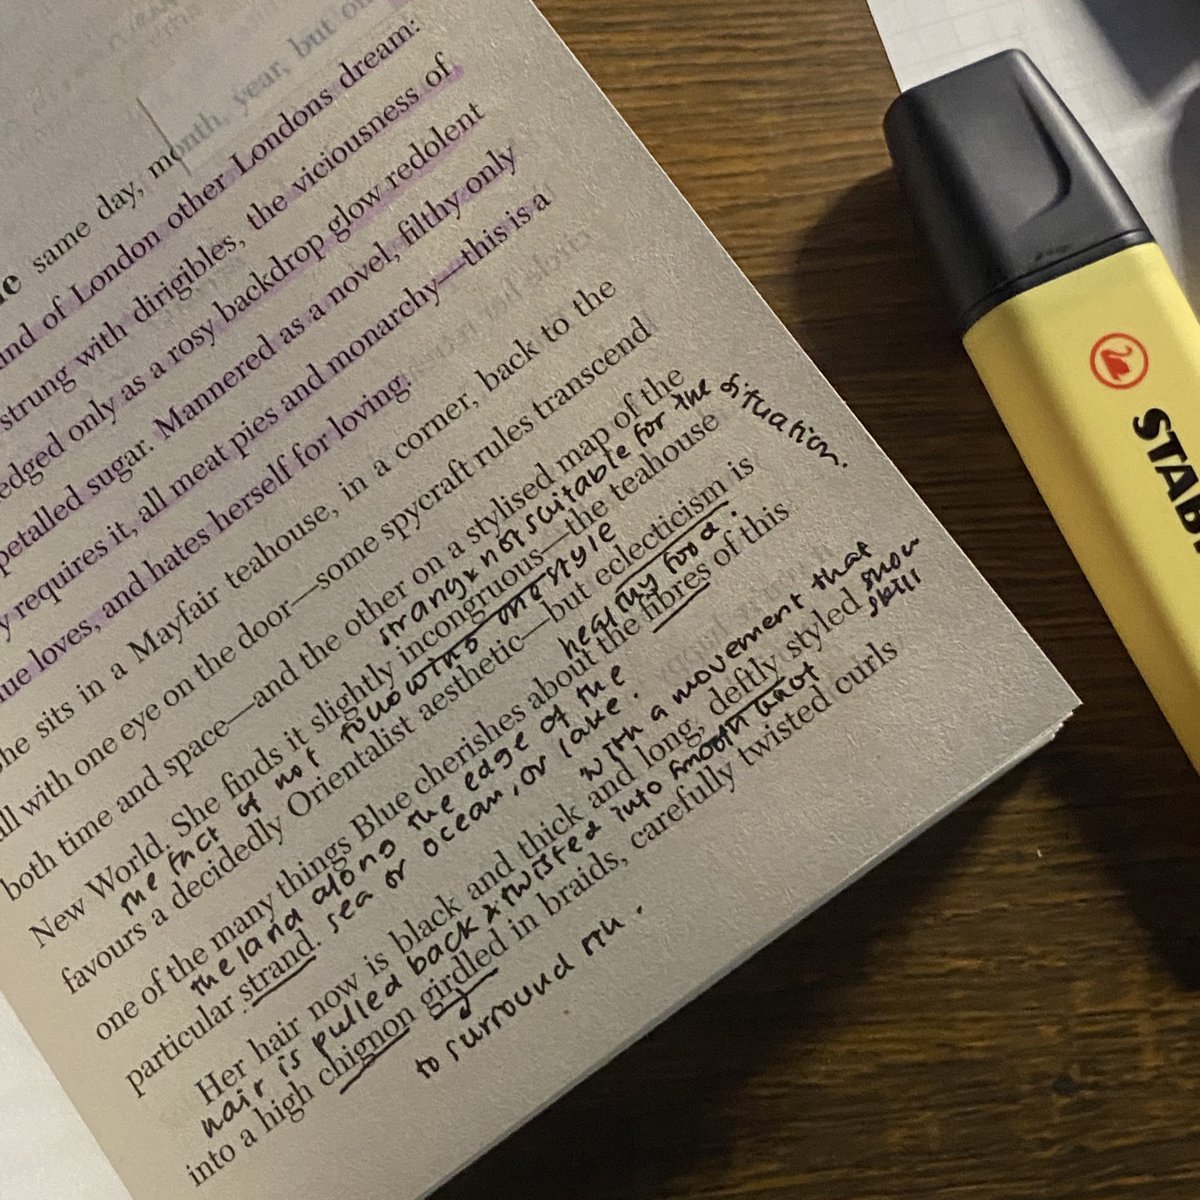 month, year, but on
same day, month
and of London other Londons dream:
strung with dirigibles, the viciousness of
edged only as a rosy backdrop glow redolent
petalled sugar. Mannered as a novel, filthy only
y requires it, all meat pies and monarchy—this is a
lue loves, and hates herself for loving.
he sits in a Mayfair teahouse, in a corner, back to the
all with one eye on the door—some spycraft rules transcend
both time and space—and the other on a stylised map of the
strange & not suitable for the situation.
New World. She finds it slightly incongruous—the teahouse
the fact of not following one style
favours a decidedly Orientalist aesthetic—but eclecticism is
healthy food.
one of the many things Blue cherishes about the fibres of this
the land along the edge of the
sea or ocean, or lake.
particular strand.
with a movement that
show
skill
Her hair now is black and thick and long, deftly styled
hair is pulled back & twisted into smooth knot
into a high chignon girdled in braids, carefully twisted curls
to surround sth.
STAB